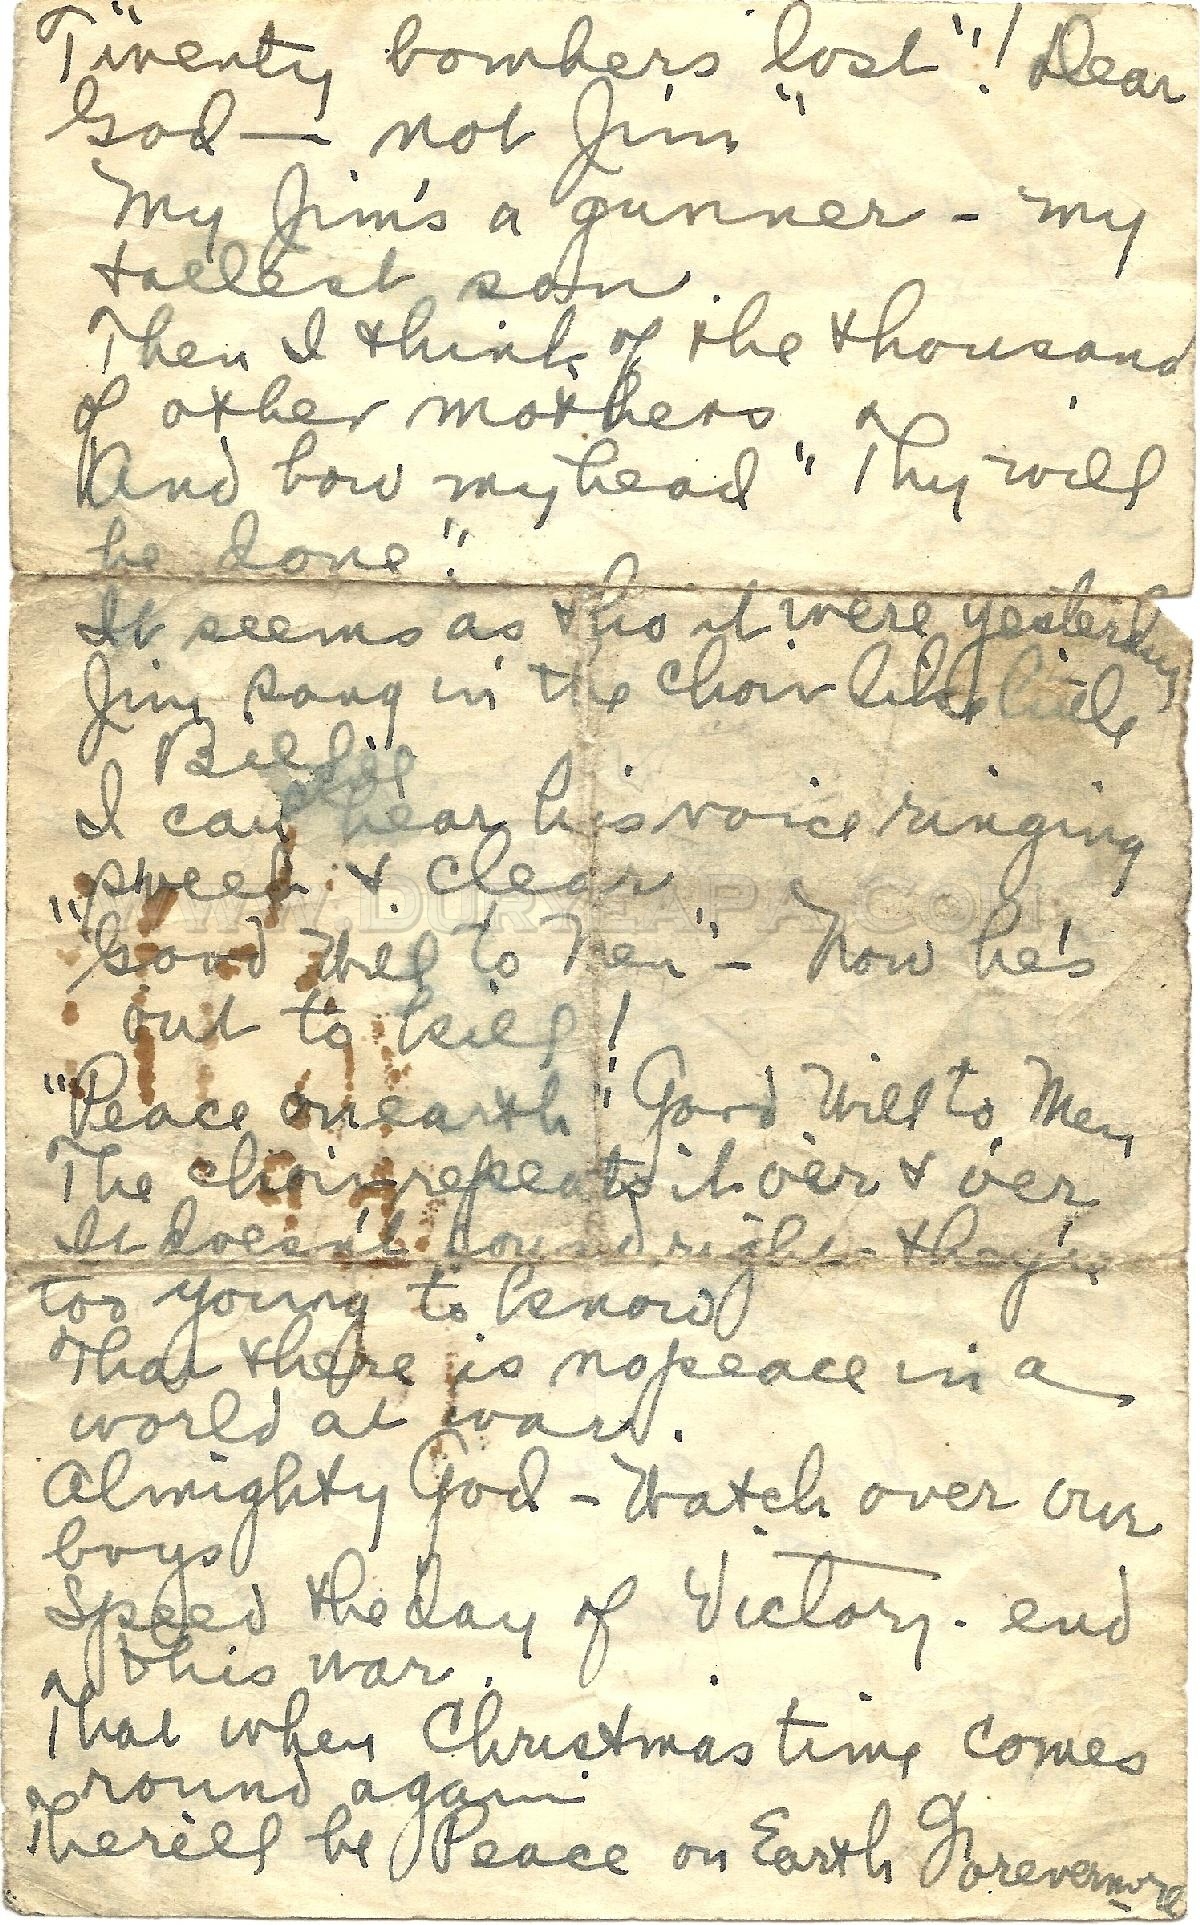 "Twenty bombers lost"! Dear
God — not Jim"
My Jim's a gunner - my
tallest son.
Then I think of the thousand
of other mothers
And bow my head "Thy will
be done".
It seems as tho it were yesterday
Jim sang in the choir like little
Bill
I can hear his voice ringing
sweet & clear
"Good Will to Men" - Now he's
out to kill!
"Peace on earth" Good Will to Men
The choir repeats it o'er & o'er
It doesn't sound right - they're
too young to know
That there is no peace in a
world at war.
Almighty God - Watch over our
boys
Speed the day of Victory - end
this war.
That when Christmas time comes
round again
There'll be Peace on Earth Forevermore
WWW.DURYEAPA.COM